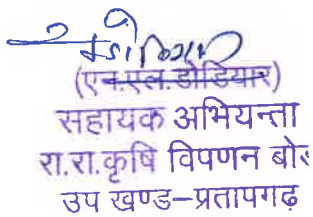 (एन.एल.डोडियार)
सहायक अभियन्ता
रा.रा.कृषि विपणन बोर्ड
उप खण्ड-प्रतापगढ़